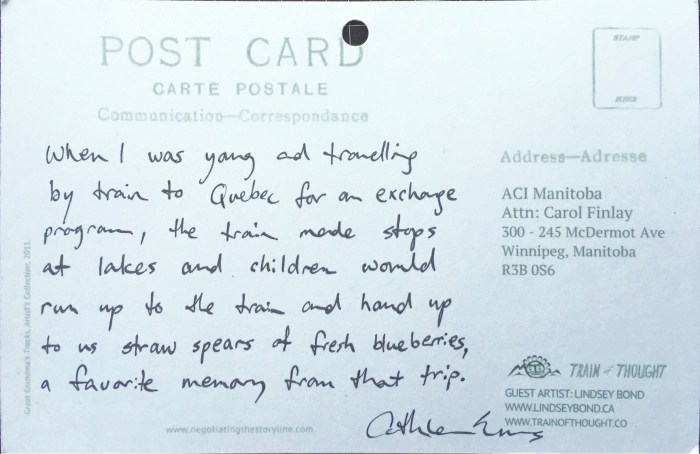 POST CARD
CARTE POSTALE
Communication—Correspondance
STAMP
When I was young and travelling
by train to Quebec for an exchange
program, the train made stops
at lakes and children would
run up to the train and hand up
to us straw spears of fresh blueberries,
a favorite memory from that trip.
Address—Adresse
ACI Manitoba
Attn: Carol Finlay
300 - 245 McDermot Ave
Winnipeg, Manitoba
R3B 0S6
TRAIN OF THOUGHT
GUEST ARTIST: LINDSEY BOND
WWW.LINDSEYBOND.CA
WWW.TRAINOFTHOUGHT.CO
www.negotiatingthestoryline.com
Great Grandma's Tracks, Artist's Collection, 2013.